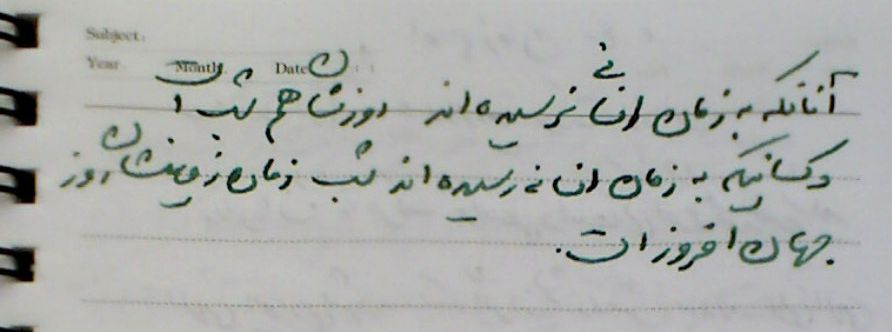 Subject:
Year Month Date
آنانکه به زمان انسانی نرسیده اند روزشان هم شب است
و کسانیکه به زمان انسانی رسیده اند شب زمان زمینشان روز
جهان افروز است.